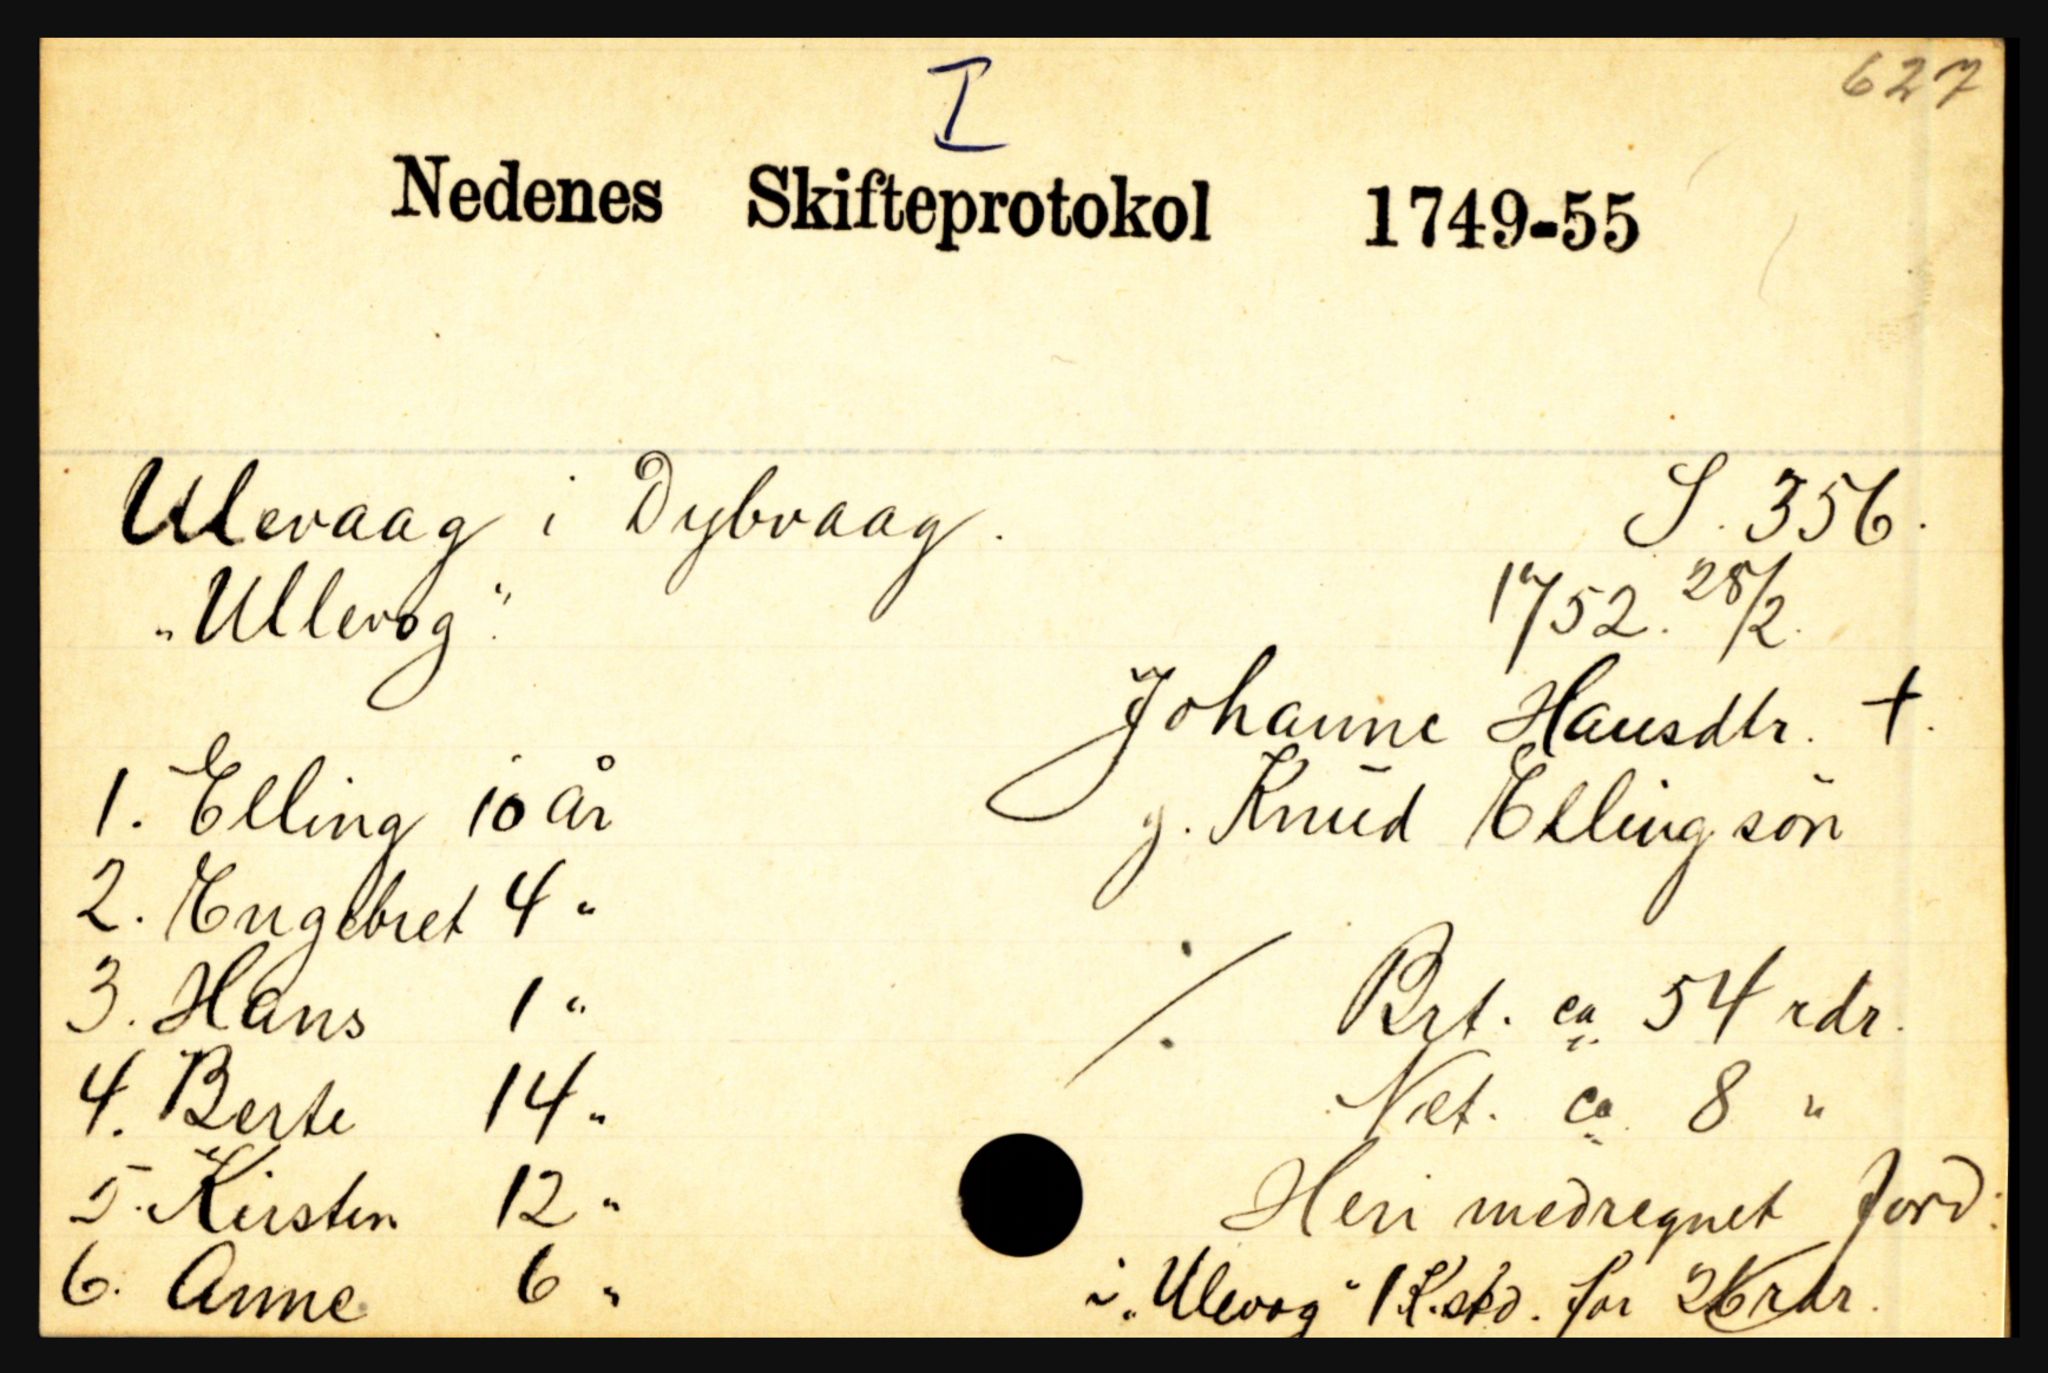 627
I
Nedenes Skifteprotokol 1749-55
Ulevaag i Dybvaag. S. 356.
"Ullevog". 1752. 28/2.
Johanne Hansdtr. +.
1. Elling 10 år g. Knud Ellingsön
2. Engebret 4 "
3. Hans 1 " ./. Brt. ca 54 rdr.
4. Berte 14 " Net. ca 8 "
5. Kirsten 12 " Heri medregnet Jord:
6. Anne 6 " i "Ulevog" 1 K.skd. for 26 rdr.